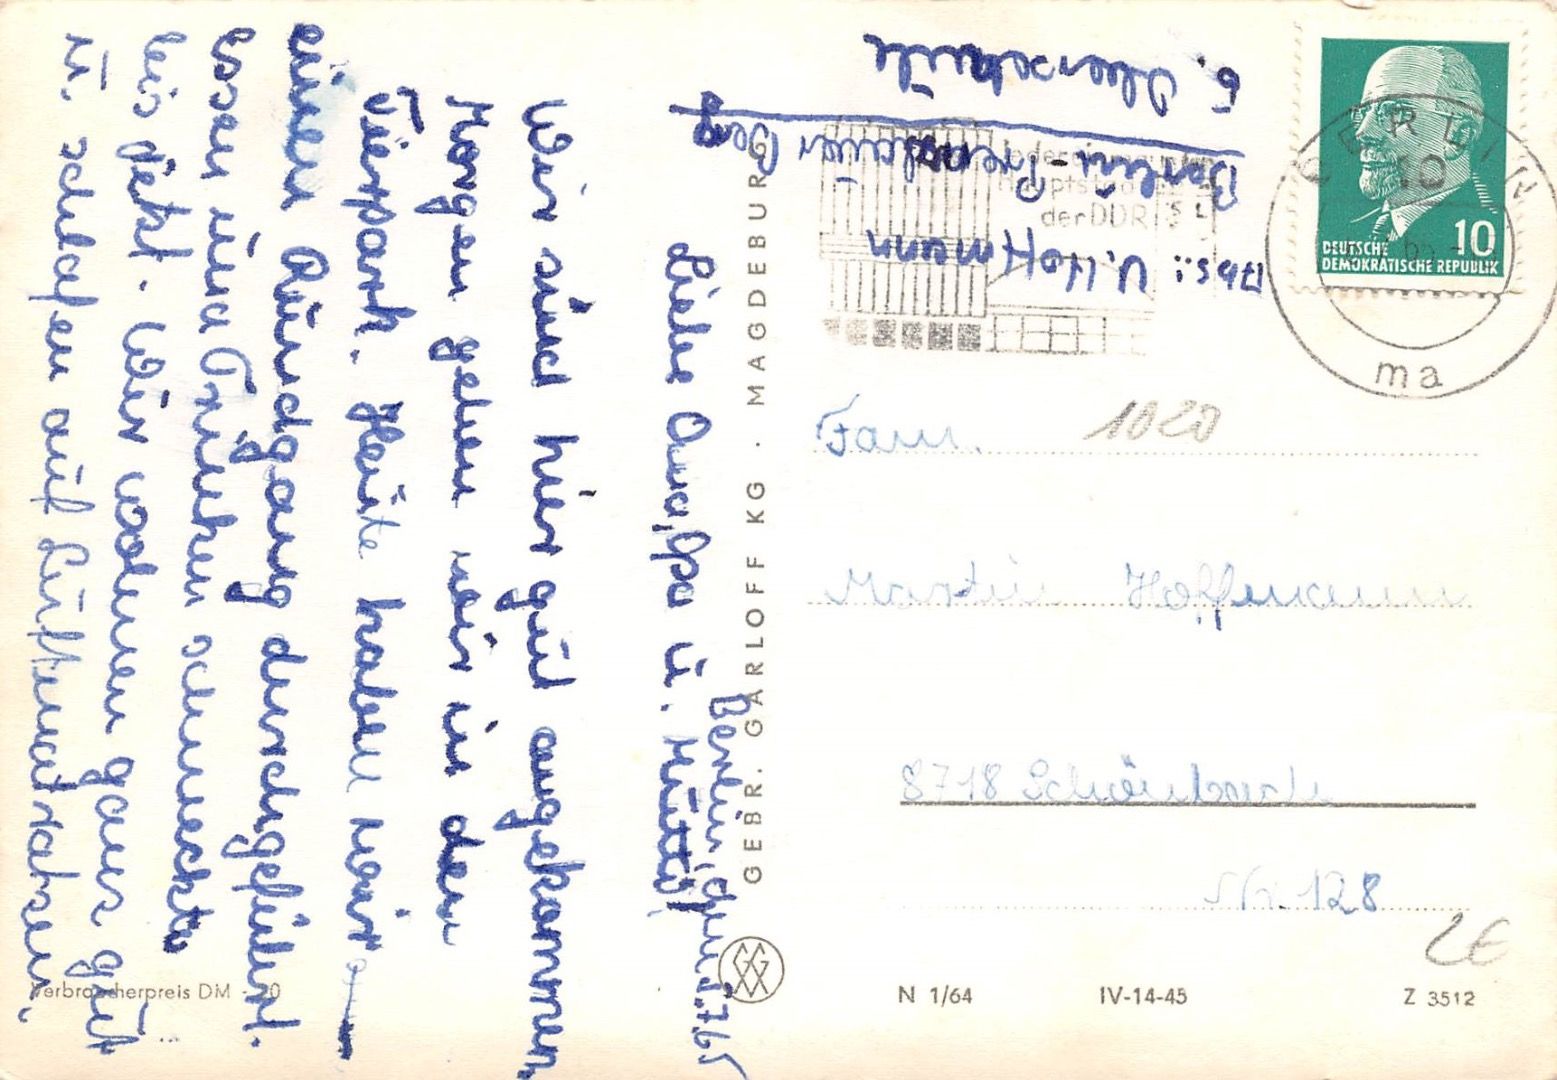 Berlin, den 5.7.65
Liebe Oma, Opa u. Mutti!
Wir sind hier gut angekommen.
Morgen gehen wir in den
Tierpark. Heute haben wir
einen Rundgang durchgeführt.
Essen und Trinken schmeckte
bis jetzt. Wir wohnen ganz gut
u. schlafen auf Luftmatratzen.
Abs.: U. Hoffmann
Berlin-Prenzlauer Berg
6. Oberschule
GEBR. GARLOFF KG · MAGDEBURG
der DDR
BERLIN
10
ma
DEUTSCHE
DEMOKRATISCHE REPUBLIK
10
1020
Fam.
Martin Hoffmann
8718 Schönbach
Nr. 128
2€
Verbraucherpreis DM -,20
N 1/64
IV-14-45
Z 3512